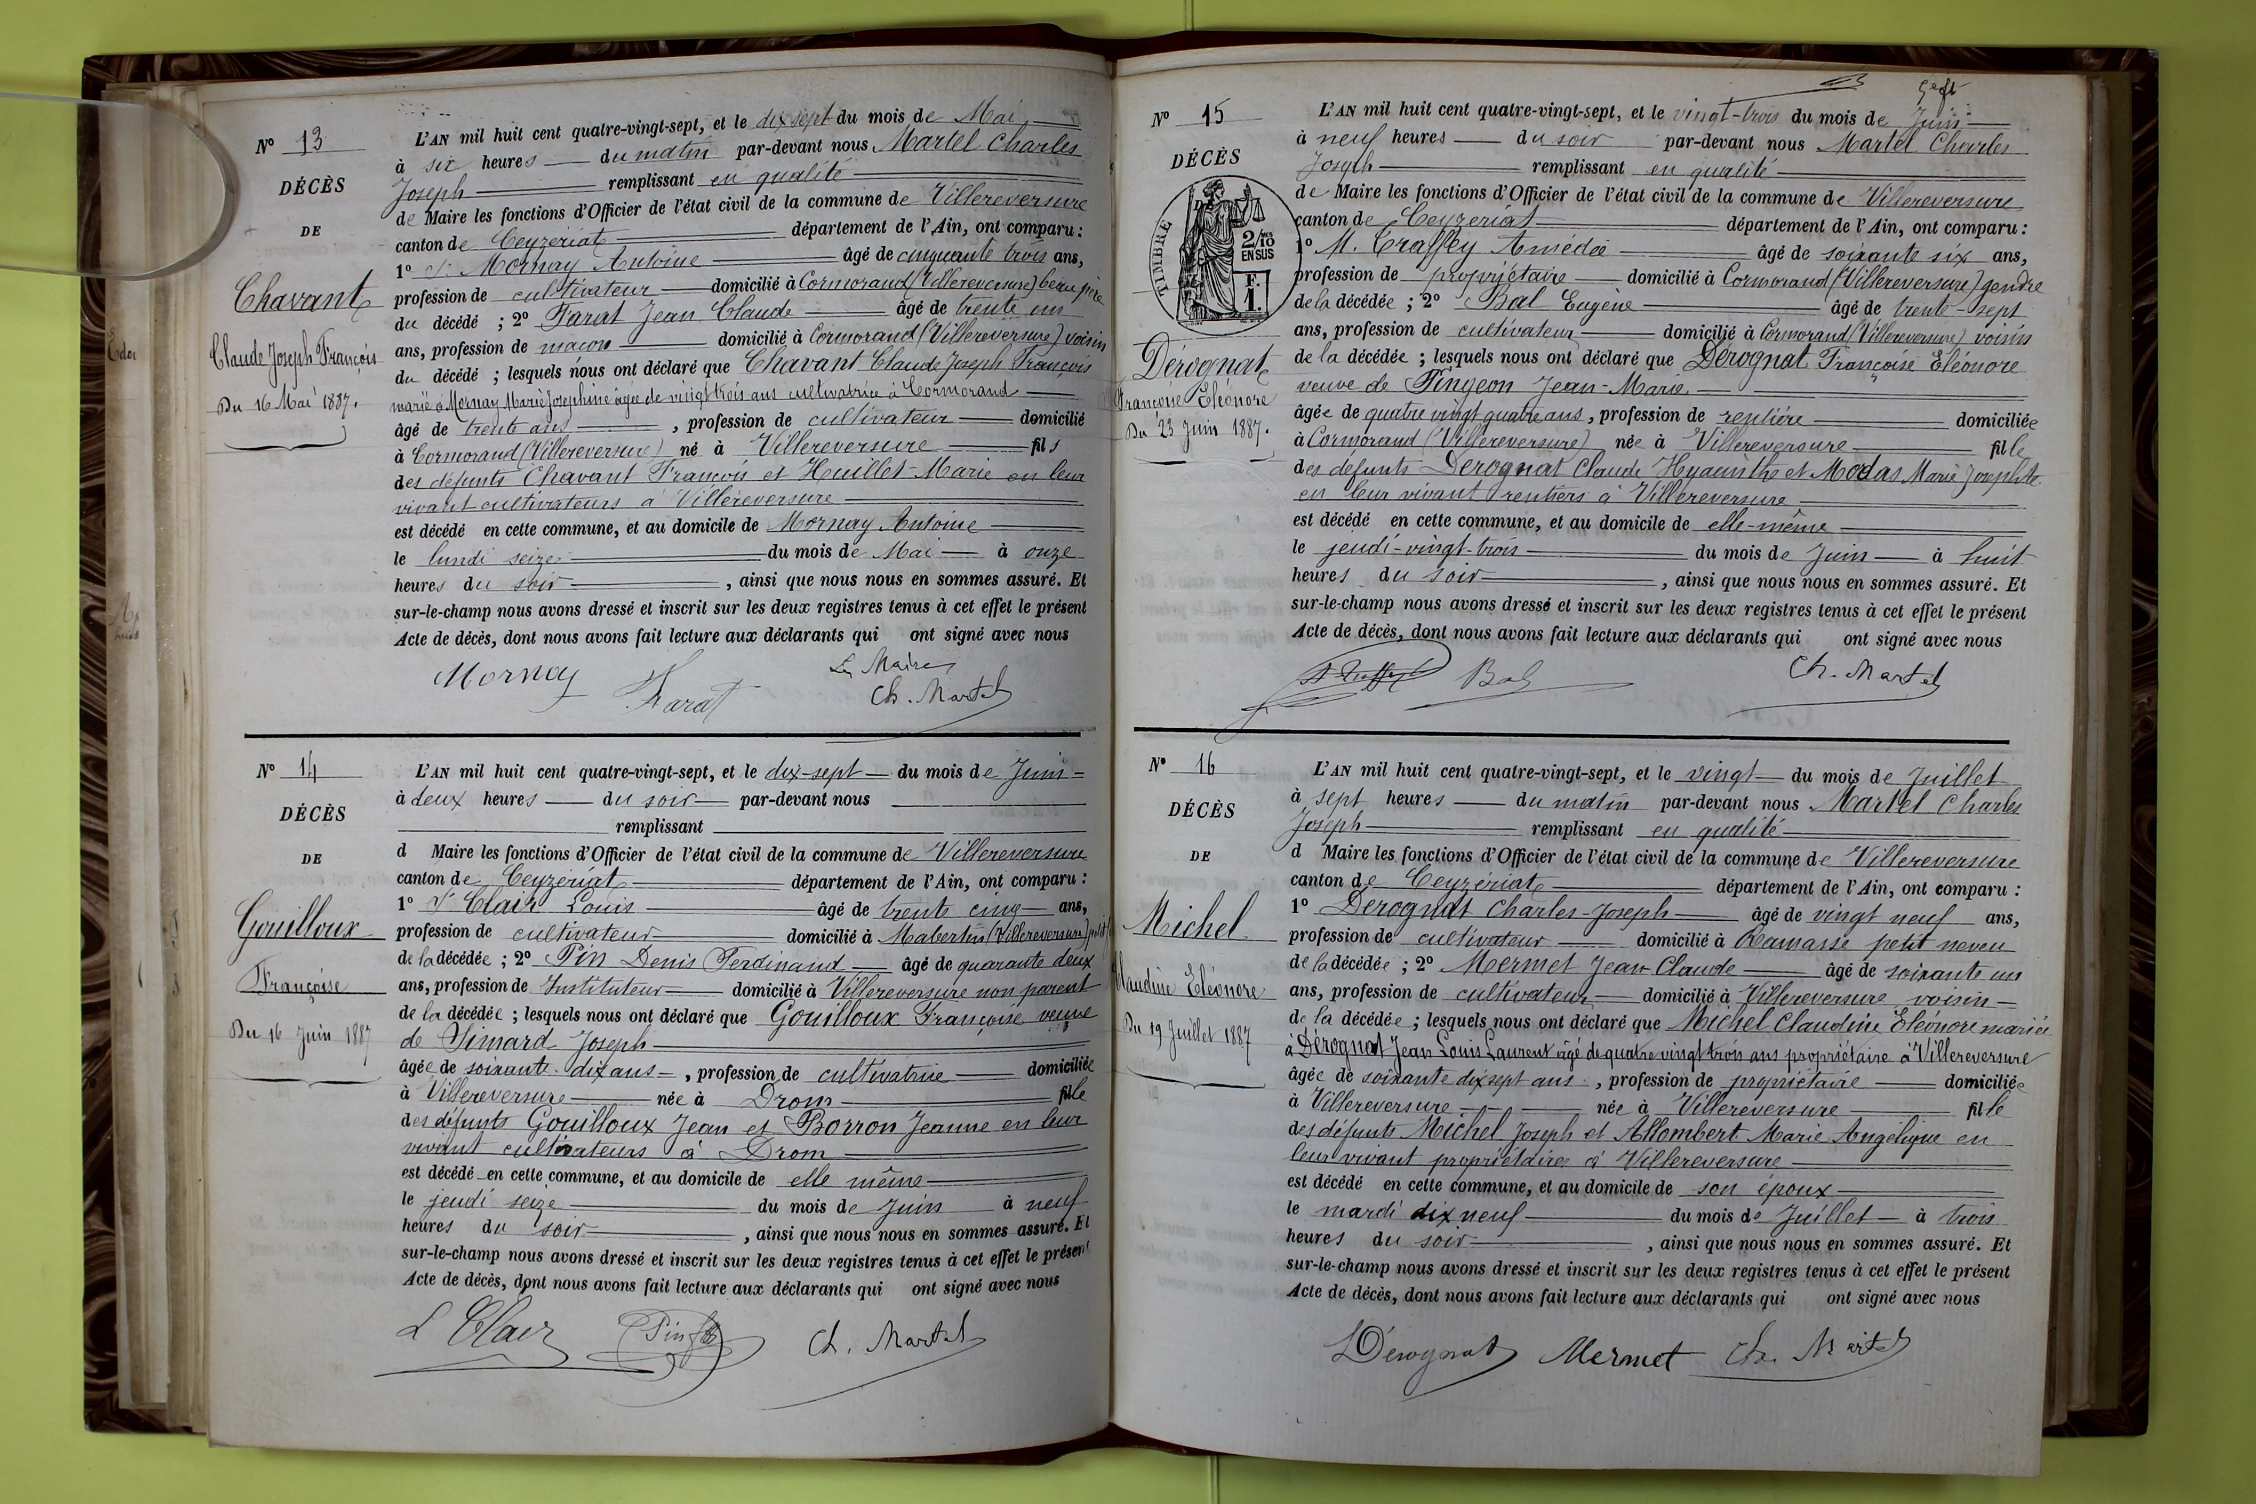 N° 13
DÉCÈS
DE
Chavant
Claude Joseph François
Du 16 Mai 1887.
L'AN mil huit cent quatre-vingt-sept, et le dix sept du mois de Mai
à six heures du matin par-devant nous Martel Charles
Joseph remplissant en qualité
de Maire les fonctions d'Officier de l'état civil de la commune de Villereversure
canton de Ceyzériat département de l'Ain, ont comparu :
1° Mornay Antoine âgé de cinquante trois ans,
profession de cultivateur domicilié à Cormorand (Villereversure) beau père
du décédé ; 2° Farat Jean Claude âgé de trente un
ans, profession de maçon domicilié à Cormorand (Villereversure) voisin
du décédé ; lesquels nous ont déclaré que Chavant Claude Joseph François
marié à Mornay Marie Joséphine âgée de vingt trois ans cultivatrice à Cormorand
âgé de trente ans , profession de cultivateur domicilié
à Cormorand (Villereversure) né à Villereversure fils
des défunts Chavant François et Huillet Marie en leur
vivant cultivateurs à Villereversure
est décédé en cette commune, et au domicile de Mornay Antoine
le lundi seize du mois de Mai à onze
heures du soir , ainsi que nous nous en sommes assuré. Et
sur-le-champ nous avons dressé et inscrit sur les deux registres tenus à cet effet le présent
Acte de décès, dont nous avons fait lecture aux déclarants qui ont signé avec nous
Mornay Farat Le Maire
Ch. Martel
N° 14
DÉCÈS
DE
Gouilloux
Françoise
Du 16 Juin 1887
L'AN mil huit cent quatre-vingt-sept, et le dix-sept du mois de Juin
à deux heures du soir par-devant nous
remplissant
d Maire les fonctions d'Officier de l'état civil de la commune de Villereversure
canton de Ceyzériat département de l'Ain, ont comparu :
1° Clair Louis âgé de trente cinq ans,
profession de cultivateur domicilié à Mabertin (Villereversure)
de la décédée ; 2° Pin Denis Ferdinand âgé de quarante deux
ans, profession de Instituteur domicilié à Villereversure non parent
de la décédée ; lesquels nous ont déclaré que Gouilloux Françoise veuve
de Simard Joseph
âgée de soixante dix ans , profession de cultivatrice domiciliée
à Villereversure née à Drom fille
des défunts Gouilloux Jean et Borron Jeanne en leur
vivant cultivateurs à Drom
est décédé en cette commune, et au domicile de elle même
le jeudi seize du mois de Juin à neuf
heures du soir , ainsi que nous nous en sommes assuré. Et
sur-le-champ nous avons dressé et inscrit sur les deux registres tenus à cet effet le présent
Acte de décès, dont nous avons fait lecture aux déclarants qui ont signé avec nous
L Clair Pin Ch. Martel
N° 15
DÉCÈS
TIMBRE
2/10
EN SUS
F.
1.
Dérognat
Françoise Eléonore
Du 23 Juin 1887.
L'AN mil huit cent quatre-vingt-sept, et le vingt-trois du mois de Juin
à neuf heures du soir par-devant nous Martel Charles
Joseph remplissant en qualité
de Maire les fonctions d'Officier de l'état civil de la commune de Villereversure
canton de Ceyzériat département de l'Ain, ont comparu :
1° M. Traffey Amédée âgé de soixante six ans,
profession de propriétaire domicilié à Cormorand (Villereversure) gendre
de la décédée ; 2° Bal Eugène âgé de trente-sept
ans, profession de cultivateur domicilié à Cormorand (Villereversure) voisin
de la décédée ; lesquels nous ont déclaré que Dérognat Françoise Eléonore
veuve de Pingeon Jean-Marie
âgée de quatre vingt quatre ans, profession de rentière domiciliée
à Cormorand (Villereversure) née à Villereversure fille
des défunts Dérognat Claude Hyacinthe et Modas Marie Josephte
en leur vivant rentiers à Villereversure
est décédé en cette commune, et au domicile de elle-même
le jeudi-vingt-trois du mois de Juin à huit
heures du soir , ainsi que nous nous en sommes assuré. Et
sur-le-champ nous avons dressé et inscrit sur les deux registres tenus à cet effet le présent
Acte de décès, dont nous avons fait lecture aux déclarants qui ont signé avec nous
Bal Ch. Martel
N° 16
DÉCÈS
DE
Michel
Claudine Eléonore
Du 19 Juillet 1887
L'AN mil huit cent quatre-vingt-sept, et le vingt du mois de Juillet
à sept heures du matin par-devant nous Martel Charles
Joseph remplissant en qualité
d Maire les fonctions d'Officier de l'état civil de la commune de Villereversure
canton de Ceyzériat département de l'Ain, ont comparu :
1° Dérognat Charles-Joseph âgé de vingt neuf ans,
profession de cultivateur domicilié à Ramasse petit neveu
de la décédée ; 2° Mermet Jean Claude âgé de soixante un
ans, profession de cultivateur domicilié à Villereversure voisin
de la décédée ; lesquels nous ont déclaré que Michel Claudine Eléonore mariée
à Dérognat Jean Louis Laurent âgé de quatre vingt trois ans propriétaire à Villereversure
âgée de soixante dix sept ans , profession de propriétaire domiciliée
à Villereversure née à Villereversure fille
des défunts Michel Joseph et Allombert Marie Angélique en
leur vivant propriétaires à Villereversure
est décédé en cette commune, et au domicile de son époux
le mardi dix neuf du mois de Juillet à trois
heures du soir , ainsi que nous nous en sommes assuré. Et
sur-le-champ nous avons dressé et inscrit sur les deux registres tenus à cet effet le présent
Acte de décès, dont nous avons fait lecture aux déclarants qui ont signé avec nous
Dérognat Mermet Ch. Martel